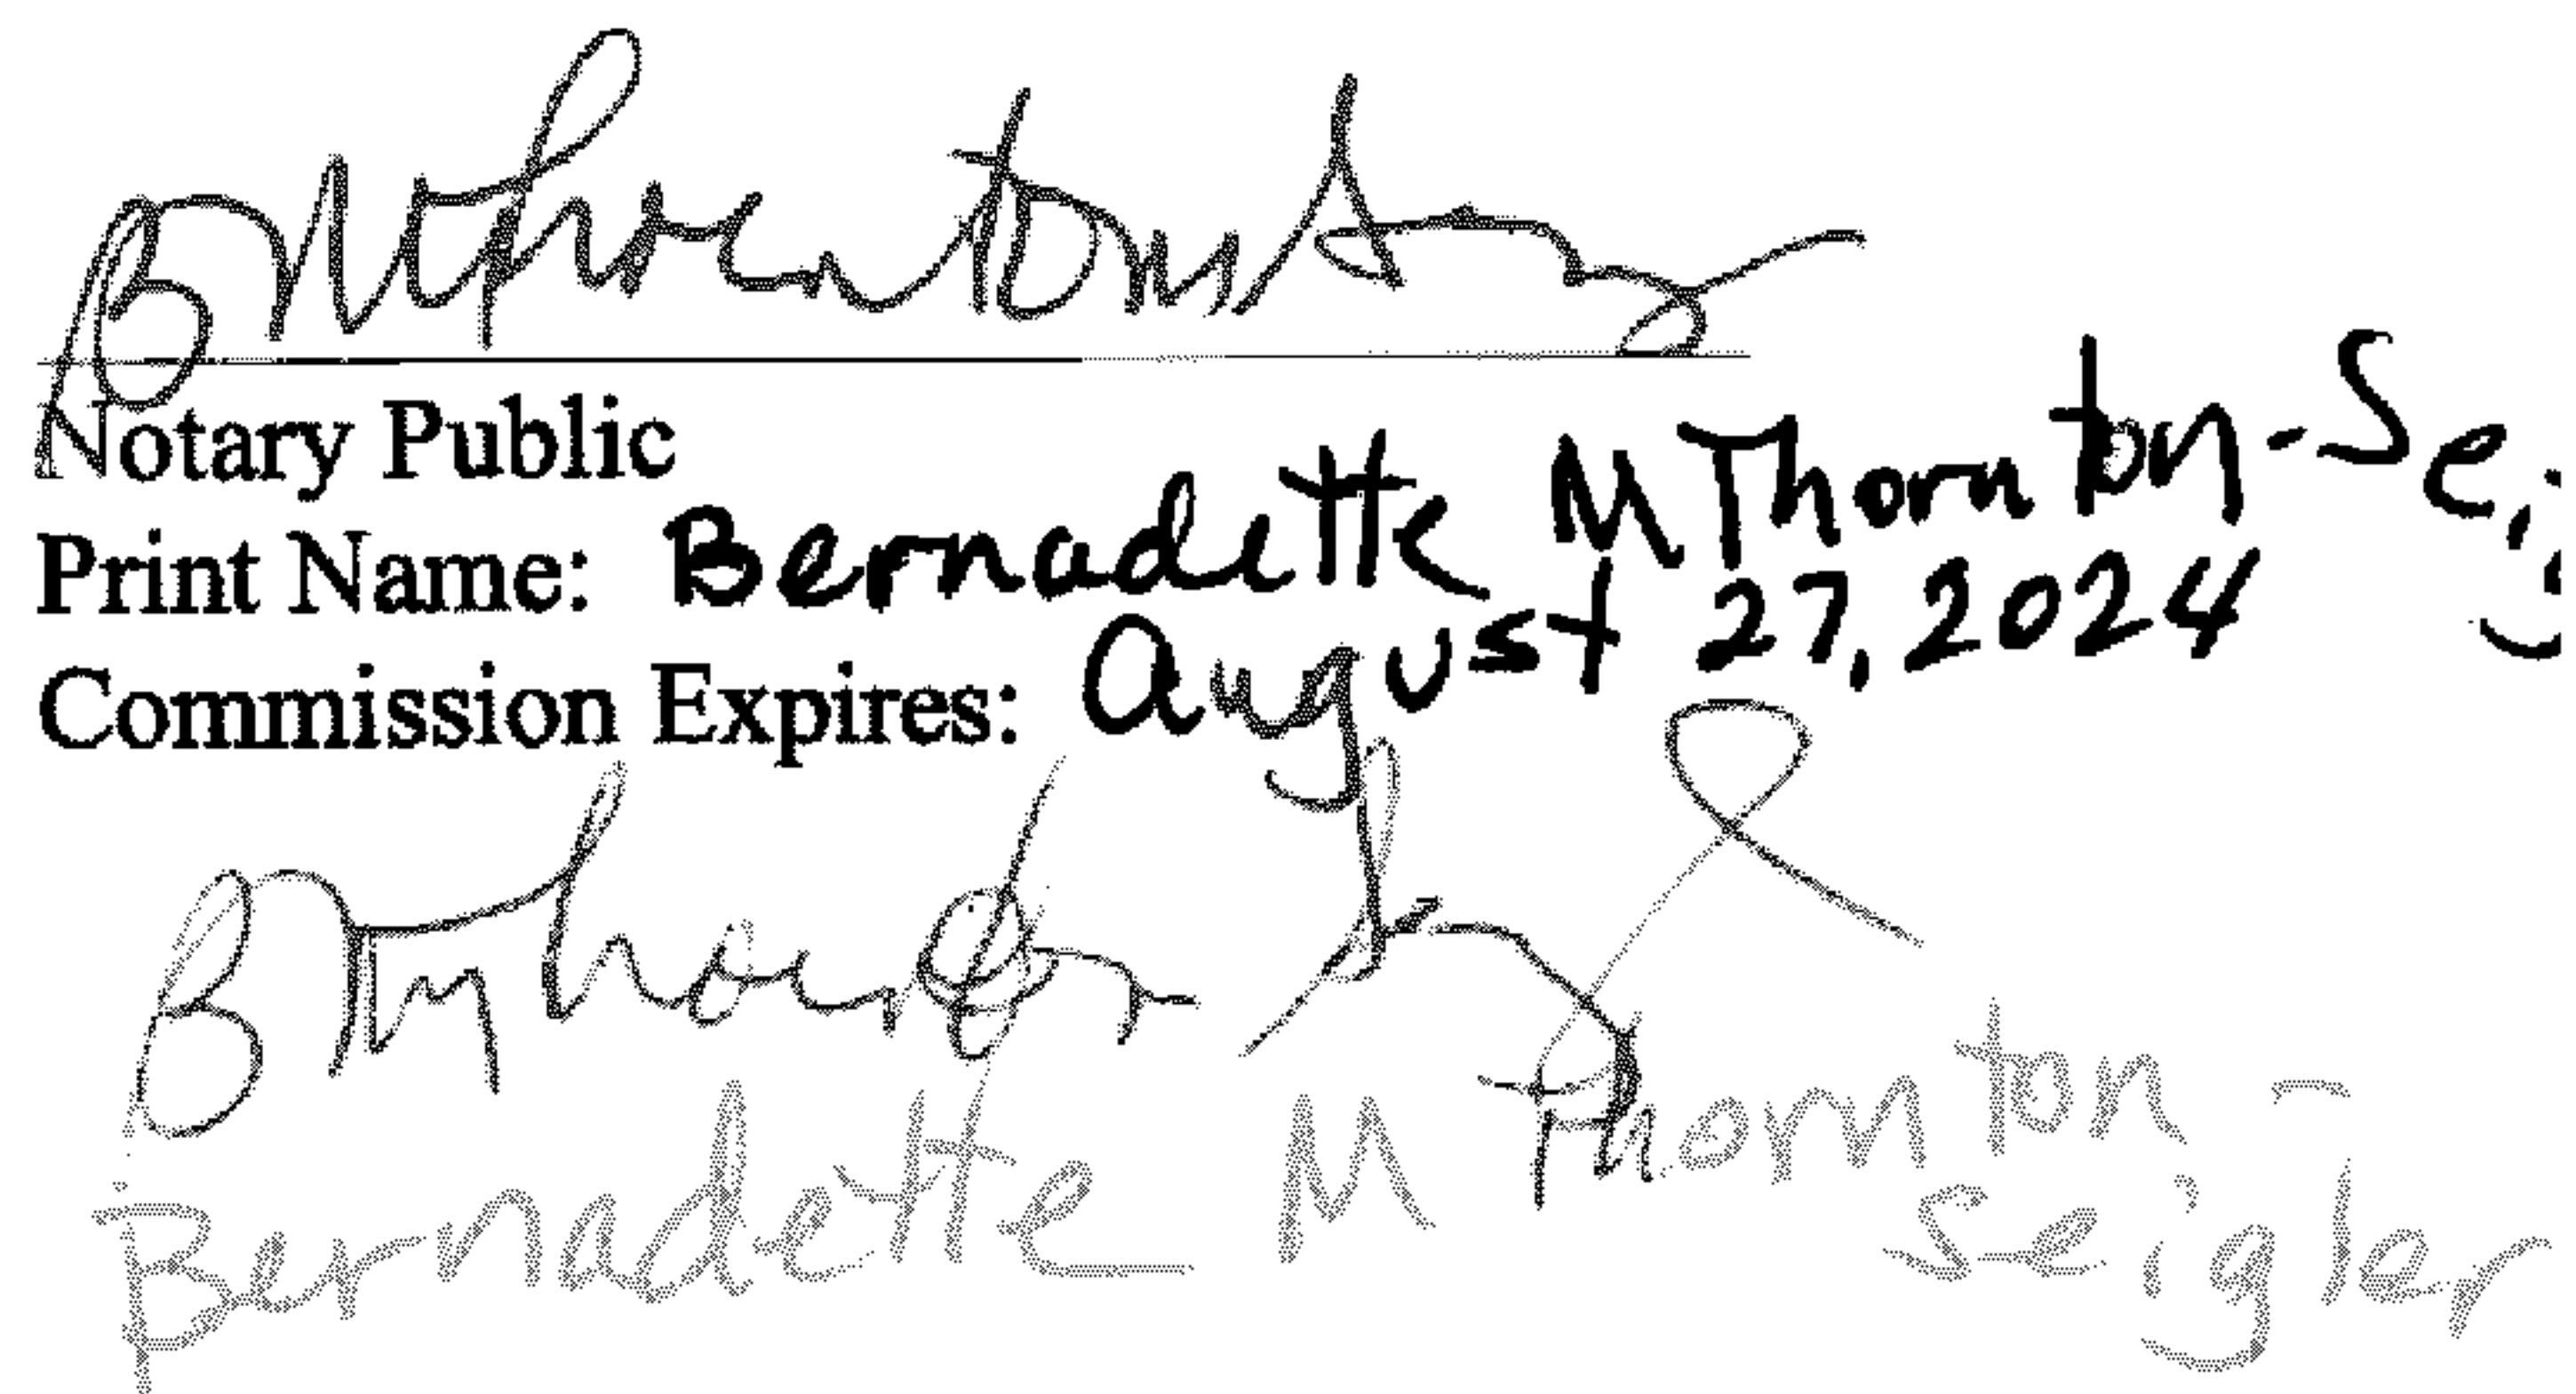 Notary Public
Print Name: Bernadette M Thornton-Seig
Commission Expires: August 27, 2024
Bernadette M Thornton-
Seigler